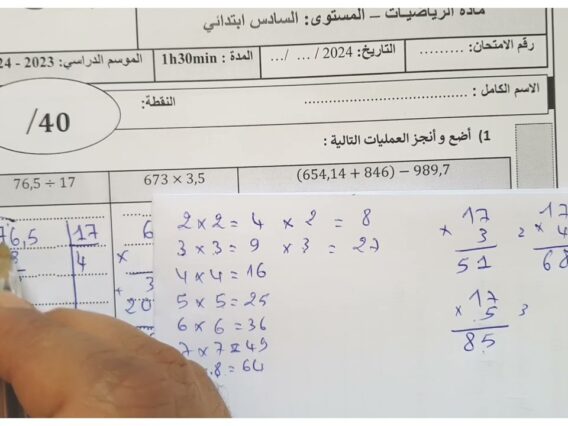 مادة الرياضيات – المستوى: السادس ابتدائي
رقم الامتحان: ......... التاريخ: 2024/ ... /... المدة : 1h30min الموسم الدراسي: 2023 - 24
الاسم الكامل : ........................ النقطة:
/40
1) أضع و أنجز العمليات التالية :
76,5 ÷ 17 673 × 3,5 (654,14 + 846) − 989,7
76,5 17
4
6
×
3
+
20
2 × 2 = 4 × 2 = 8
3 × 3 = 9 × 3 = 27
4 × 4 = 16
5 × 5 = 25
6 × 6 = 36
7 × 7 = 49
8 = 64
17
× 3
51
2
17
× 4
68
17
× 5
3
85